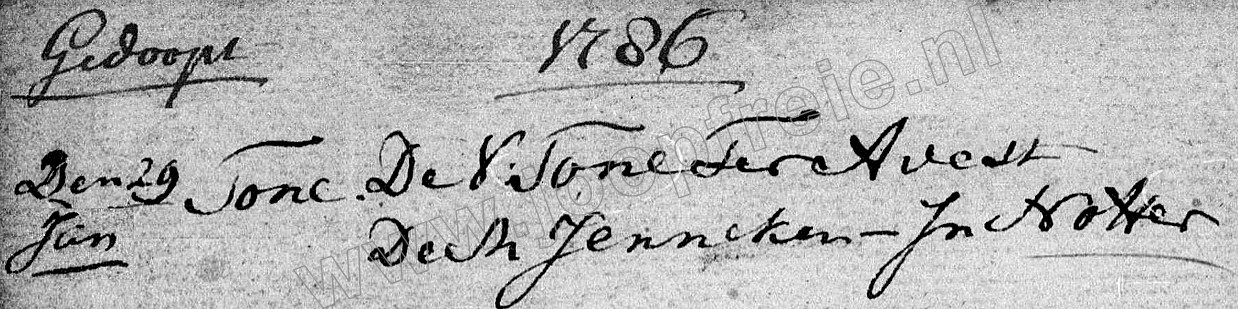 Gedoopt 1786
Den 29 Tone. De V. Tone Ter Avest
Jan De M Jenneken - In Notter
www.joopfreie.nl